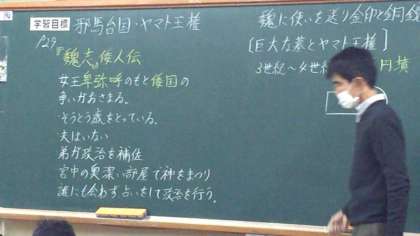 学習目標 邪馬台国・ヤマト王権
P29
『魏志』倭人伝
女王卑弥呼のもと倭国の
争いがおさまる。
そうとう歳をとっている。
夫はいない
弟が政治を補佐
宮中の奥深い部屋で神をまつり
誰にも会わず占いをして政治を行う。
魏に使いを送り金印と銅鏡
[巨大な墓とヤマト王権]
3世紀〜4世紀
円墳